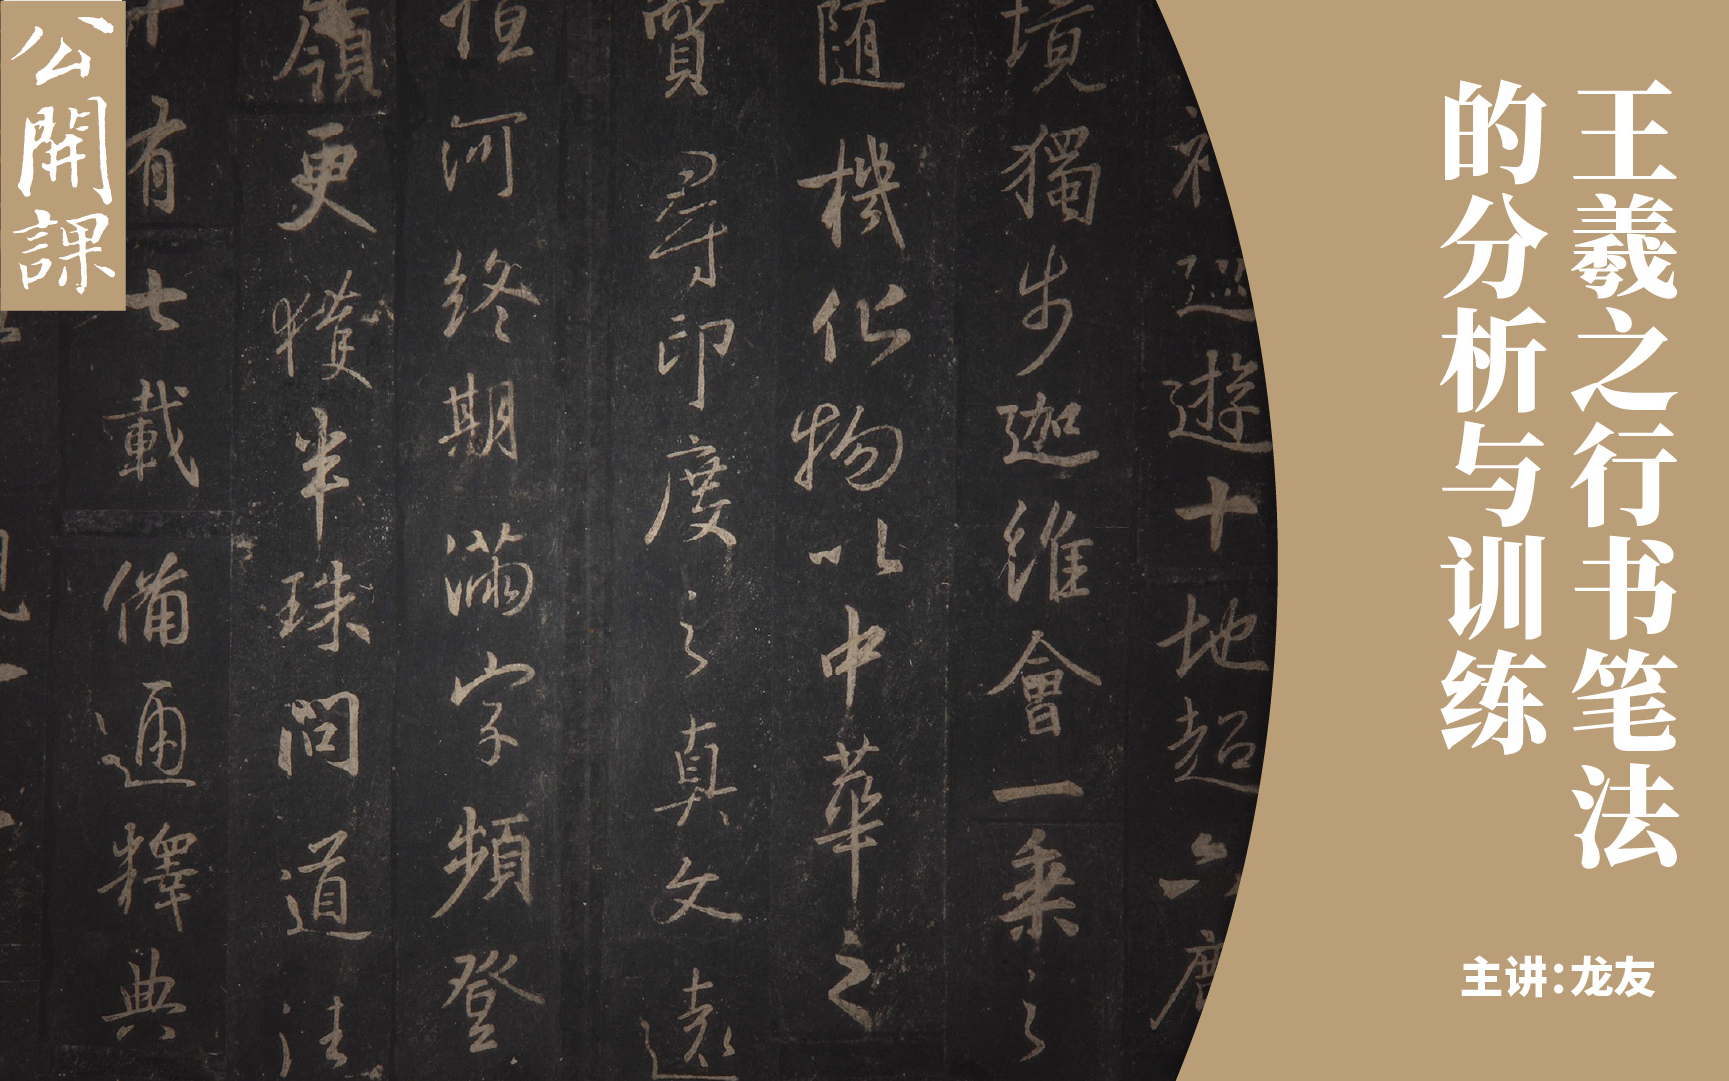 公開課
王羲之行书笔法
的分析与训练
主讲:龙友
遊十地超六塵
境獨步迦維會一乘之
随機化物以中華之
質尋印度之真文遠
恒河終期滿字頻登
嶺更獲半珠問道法
有七載備通釋典